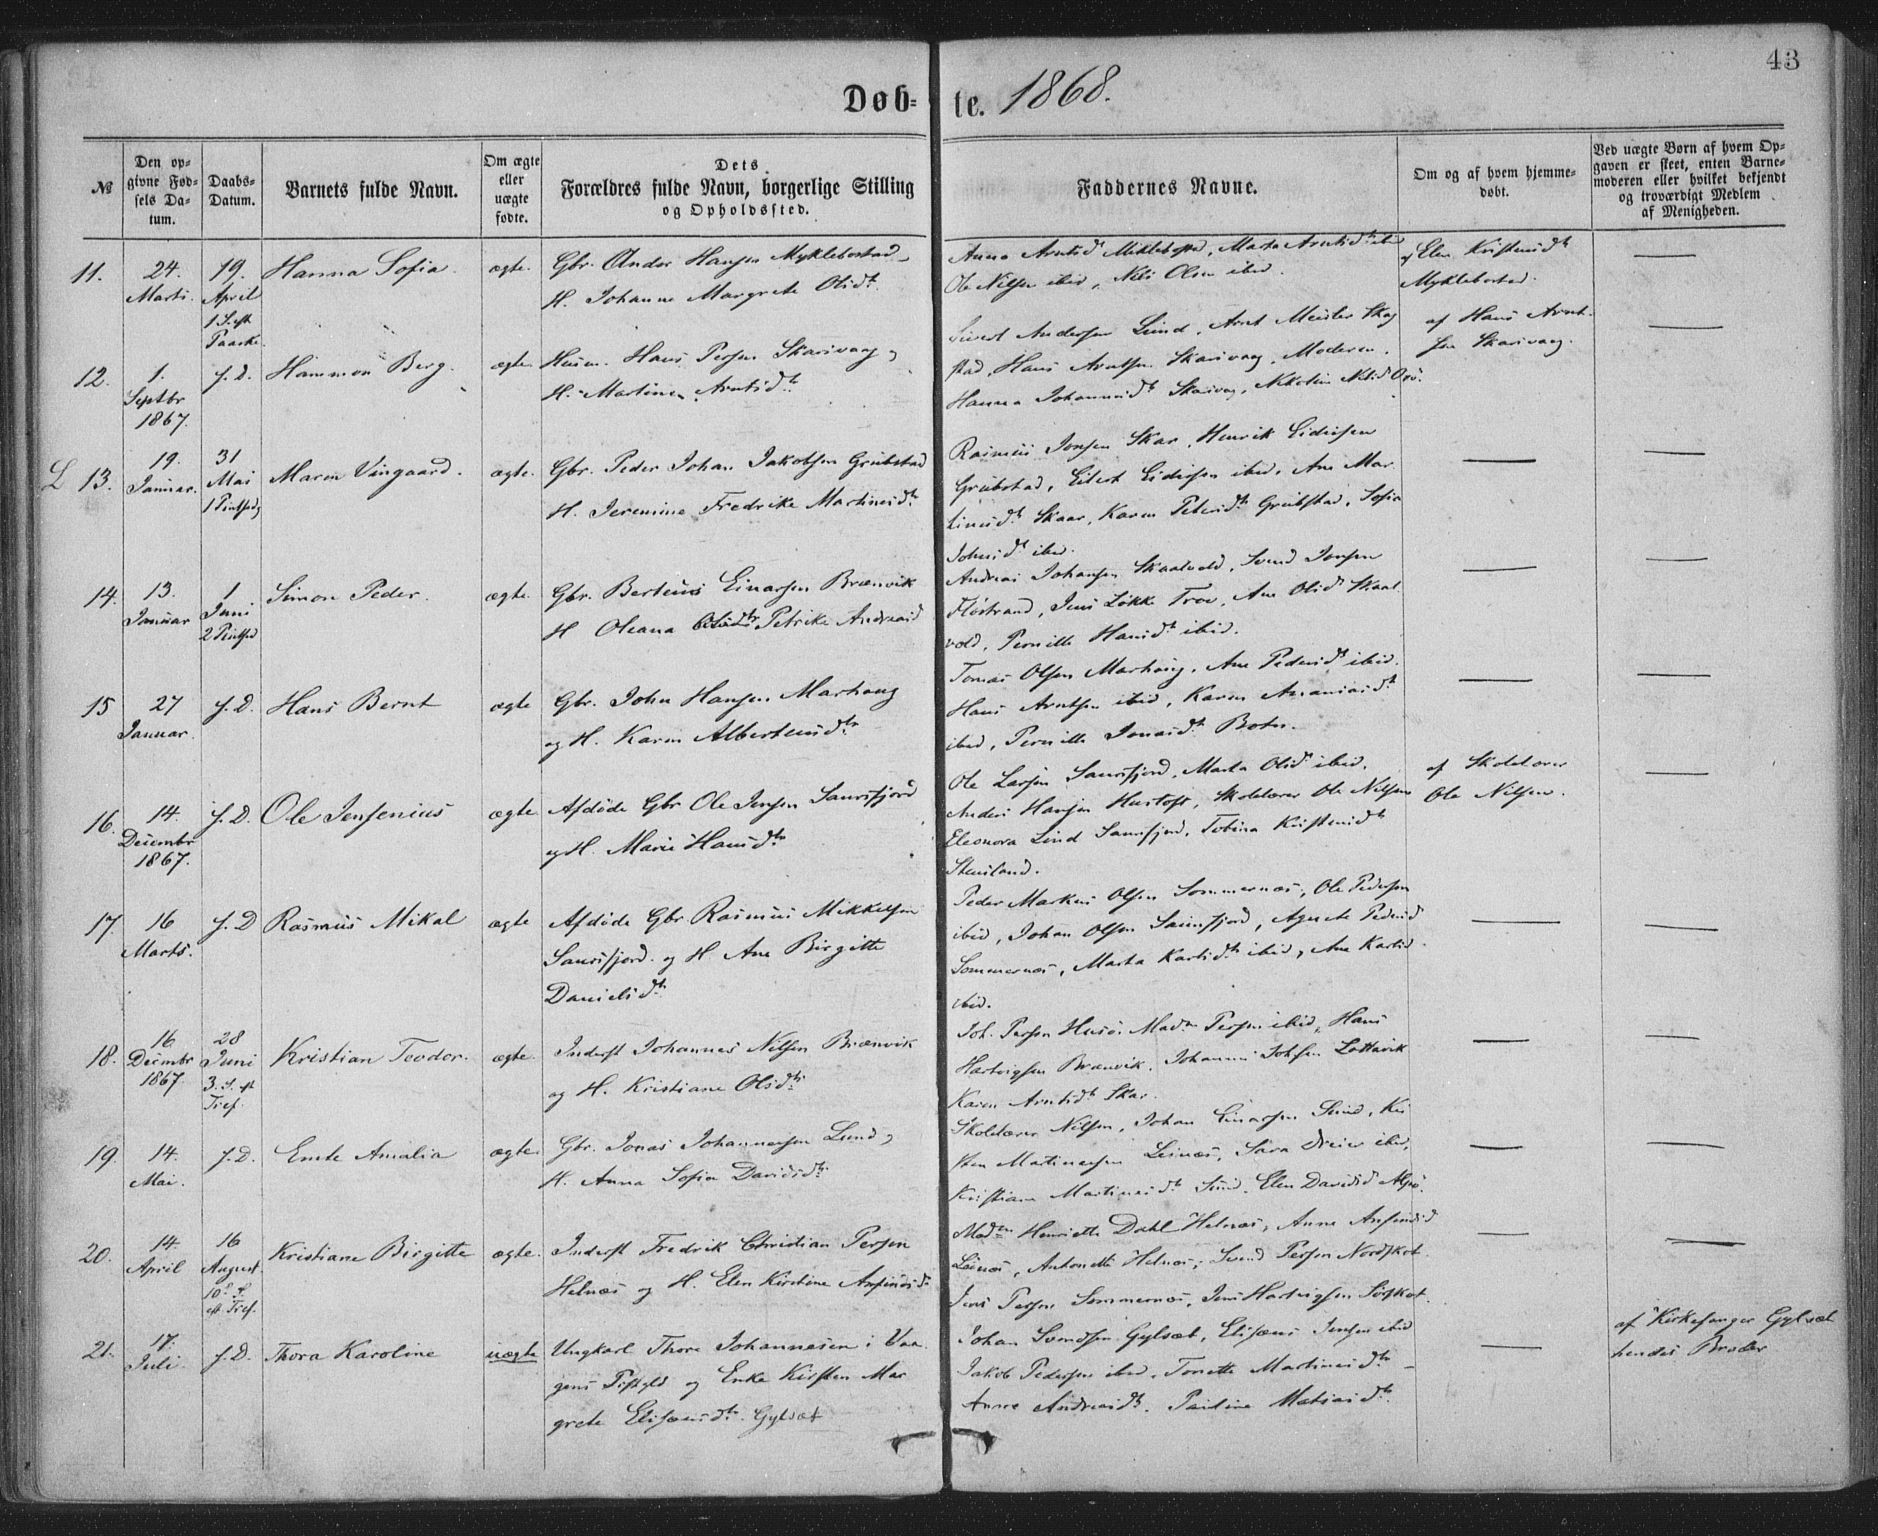 43
Døb- te. 1868.
№
Den op-
givne Fød-
sels Da-
tum.
Daabs-
Datum.
Barnets fulde Navn.
Om ægte
eller
uægte
fødte.
Dets
Forældres fulde Navn, borgerlige Stilling
og Opholdssted.
Faddernes Navne.
Om og af hvem hjemme-
døbt.
Ved uægte Børn af hvem Op-
gaven er skeet, enten Barne-
moderen eller hvilket bekjendt
og troværdigt Medlem
af Menigheden.
11.
24.
Marts.
19.
April
1 S. eft
Paaske.
Hanna Sofia.
ægte.
Gbr. Anders Hansen Myklebostad
H. Johanne Margrete Olsdt.
Anna Arntsdt Myklebostad, Marta Arntsdt ibid
Ole Nilsen ibid, Nils Olsen ibid.
af Elen Kristensdt
Myklebostad.
12.
1.
Septbr
1867.
f. D.
Hammon Berg.
ægte.
Husm. Hans Persen Skarsvaag,
H. Martine Arntsdtr
Sivert Andersen Lund, Arnt Meisler Skag
stad, Hans Arntsen Skarsvaag, Moderen.
Hanna Johannesdt Skarsvag, Nikolina Nilsd
af Hans Arnt-
sen Skarsvaag.
L 13.
19.
Januar.
31
Mai
1 Pintsedg
Maren Vingaard.
ægte.
Gbr. Peder Johan Jakobsen Grubstad
H. Jeremine Fredrike Martinusdt.
Rasmus Jonsen Skar, Henrik Eidissen
Grubstad, Eilert Eidissen ibid, Ane Mar
tinusdt Skaar, Karen Petersdt Grubstad, Sofia
Johnsdt ibid.
14.
13.
Januar
1
Juni
2 Pintsed
Simon Peder.
ægte.
Gbr. Berteus Einarsen Brænvik
H Oleana Petrike Andreasd
Andreas Johansen Skaalvold, Svend Jonsen
Fløstrand, Jens Løkke Trov, Ane Olsd Skaal
vold, Pernille Hansdt ibid.
15
27
Januar.
f. D.
Hans Bernt
ægte
Gbr. John Hansen Marhaug
og H. Karen Albertsdtr
Tomas Olsen Marhaug, Ane Pedersdt ibid.
Hans Arntsen ibid, Karen Ananiasdt
ibid, Pernille Jonasdt Botn.
16.
14.
Decembr
1867.
f. D.
Ole Jensenius
ægte.
Afdøde Gbr Ole Jensen Saursfjord
og H. Marie Hansdtr
Ole Larsen Saursfjord, Marta Olsdt ibid.
Anders Hansen Hustoft, Skolelærer Ole Nilsen
Eleonora Lind Saursfjord, Tobina Kristensdt
Stensland.
af Skolelærer
Ole Nilsen.
17.
16
Marts.
f. D
Rasmus Mikal
ægte
Afdøde Gbr Rasmus Mikkelsen
Saursfjord. og H Ane Birgitte
Danielsdtr
Peder Markus Olsen Sommernæs, Ole Pedersen
ibid, Johan Olsen Saursfjord, Agnete Pedersd
Sommernæs, Marta Karlsdtr ibid, Ane Karlsd.
ibid.
18.
16
Decembr
1867.
28
Juni
3. S. eft
Tref.
Kristian Teodor.
ægte.
Inderst Johannes Nilsen Brænvik
og H. Kristiane Olsdtr
Joh. Persen Husø. Madm Persen ibid, Hans
Hartvigsen Brænvik. Johannes Johsen Lottavik
Karen Arntsdt Skar.
19.
14.
Mai.
f. D.
Emte Amalia
ægte.
Gbr. Jonas Johannessen Lund,
H. Anna Sofia Davidsdtr.
Skolelærer Nilsen, Johan Einarsen Lund, Kri
sten Martinussen Leinæs, Sara Dreier ibid,
Kristiane Martinusdt Lund. Elen Davidsd Alpø.
20.
14.
April
16
August.
10de S.
eft. Tref.
Kristiane Birgitte
ægte.
Inderst Fredrik Christian Persen
Helnæs og H. Elen Kirstine Anfinsdt
Madm Henriette Dahl Helnæs, Anne Anfinsdtd
Leinæs, Antonette Helnæs, Svend Persen Nordskot.
Jens Persen Sommernæs, Jens Hartvigsen Sørskot.
21.
17.
Juli.
f. D.
Thora Karoline
uægte
Ungkarl Thore Johannesen i Vaa
gens Pstgld og Enke Kirsten Mar
grete Eliseusdt. Gylset
Johan Svendsen Gylset, Eliseus Jensen ibid
Jakob Pedersen ibid. Tonette Martinusdtr
Anne Andreasdt. Pauline Matiasdt.
af Kirkesanger Gylset
hendes Broder